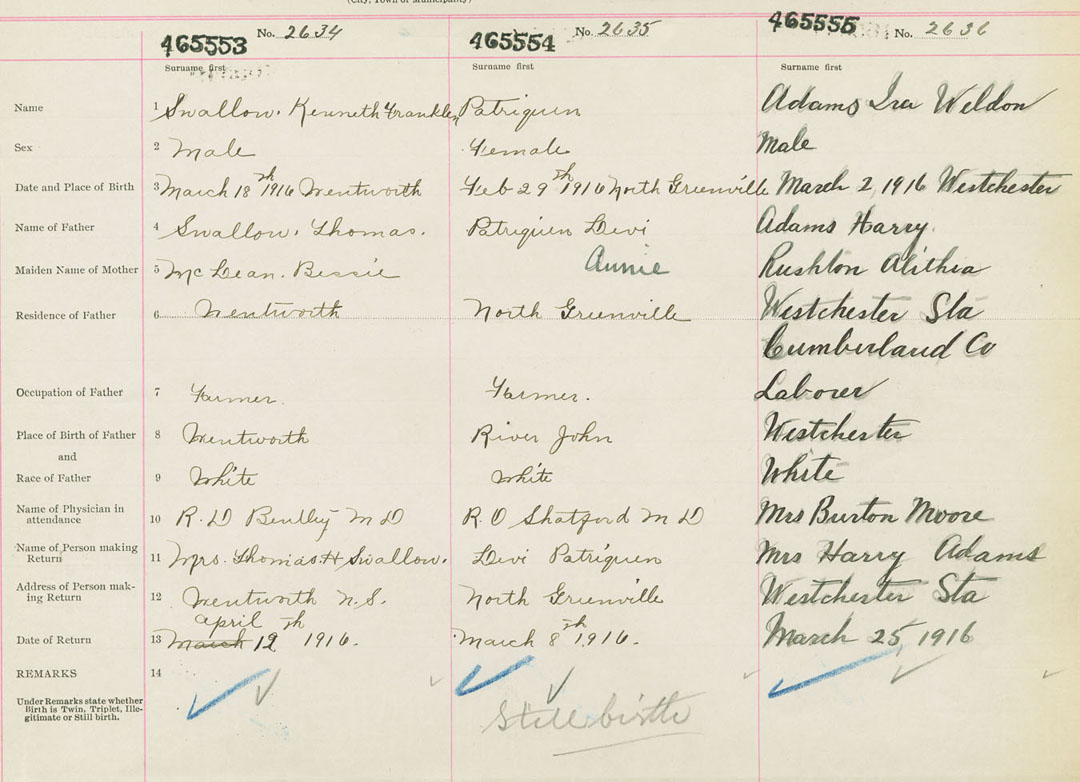 (City, Town or Municipality)
465553 No. 2634 465554 No. 2635 465555 No. 2636
Surname first Surname first Surname first
Name 1 Swallow. Kenneth Franklen Patriquen Adams Ira Weldon
Sex 2 Male Female Male
Date and Place of Birth 3 March 18th 1916 Wentworth Feb 29th 1916 North Greenville March 2, 1916 Westchester
Name of Father 4 Swallow. Thomas. Patriquen Levi Adams Harry.
Maiden Name of Mother 5 McLean. Bessie Annie Rushton Alithea
Residence of Father 6 Wentworth North Greenville Westchester Sta
Cumberland Co
Occupation of Father 7 Farmer. Farmer. Laborer
Place of Birth of Father 8 Wentworth River John Westchester
and
Race of Father 9 White White White
Name of Physician in
attendance 10 R. D Bentley M D R. O Shatford M D Mrs Burton Moore
Name of Person making
Return 11 Mrs. Thomas. H Swallow. Levi Patriquen Mrs Harry Adams
Address of Person mak-
ing Return 12 Wentworth N. S. North Greenville Westchester Sta
April th
Date of Return 13 March 12 1916. March 8th 1916. March 25, 1916
REMARKS 14
Under Remarks state whether
Birth is Twin, Triplet, Ille-
gitimate or Still birth.
Still birth